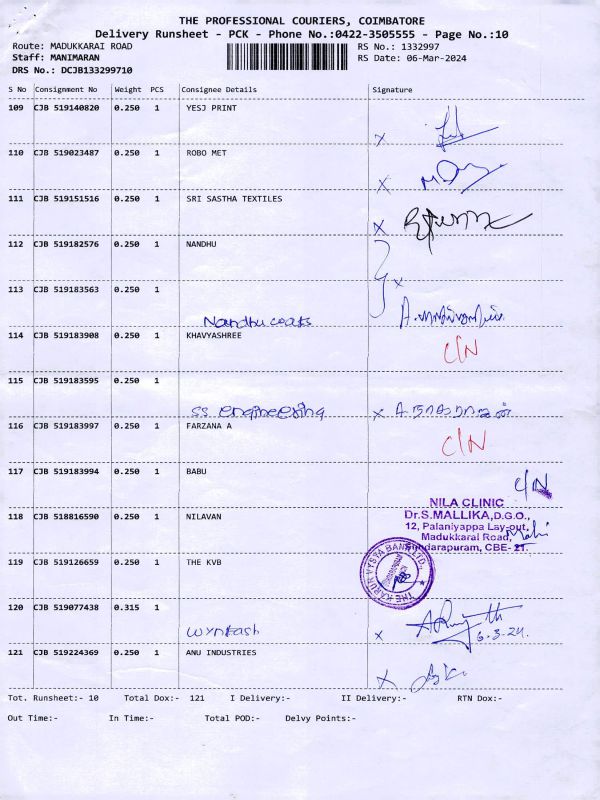 THE PROFESSIONAL COURIERS, COIMBATORE
Delivery Runsheet - PCK - Phone No.:0422-3505555 - Page No.:10
Route: MADUKKARAI ROAD RS No.: 1332997
Staff: MANIMARAN RS Date: 06-Mar-2024
DRS No.: DCJB133299710
S No Consignment No Weight PCS Consignee Details Signature
109 CJB 519140820 0.250 1 YESJ PRINT X
110 CJB 519023487 0.250 1 ROBO MET X
111 CJB 519151516 0.250 1 SRI SASTHA TEXTILES X
112 CJB 519182576 0.250 1 NANDHU X
113 CJB 519183563 0.250 1
Nandhu coats
114 CJB 519183908 0.250 1 KHAVYASHREE C/N
115 CJB 519183595 0.250 1
SS engineering X
116 CJB 519183997 0.250 1 FARZANA A C/N
117 CJB 519183994 0.250 1 BABU C/N
NILA CLINIC
Dr.S.MALLIKA,D.G.O.,
118 CJB 518816590 0.250 1 NILAVAN
12, Palaniyappa Lay-out,
Madukkarai Road,
Sundarapuram, CBE- 21.
119 CJB 519126659 0.250 1 THE KVB
THE KARUR VYSYA BANK LTD.
120 CJB 519077438 0.315 1
X 6-3-24.
121 CJB 519224369 0.250 1 ANU INDUSTRIES X
Tot. Runsheet:- 10 Total Dox:- 121 I Delivery:- II Delivery:- RTN Dox:-
Out Time:- In Time:- Total POD:- Delvy Points:-